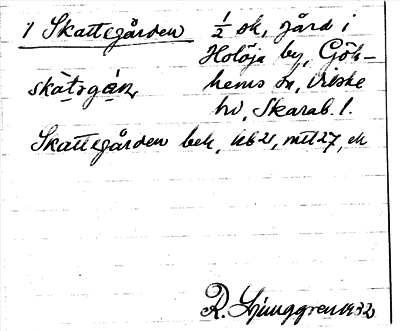 1 Skattegården ½ sk, gård i
Holöja by, Gök-
skàtsgán hems sn, Vilske
hd, Skarab. l.
Skattegården bek, ub2, mtl27, ek
R. Ljunggren 1932